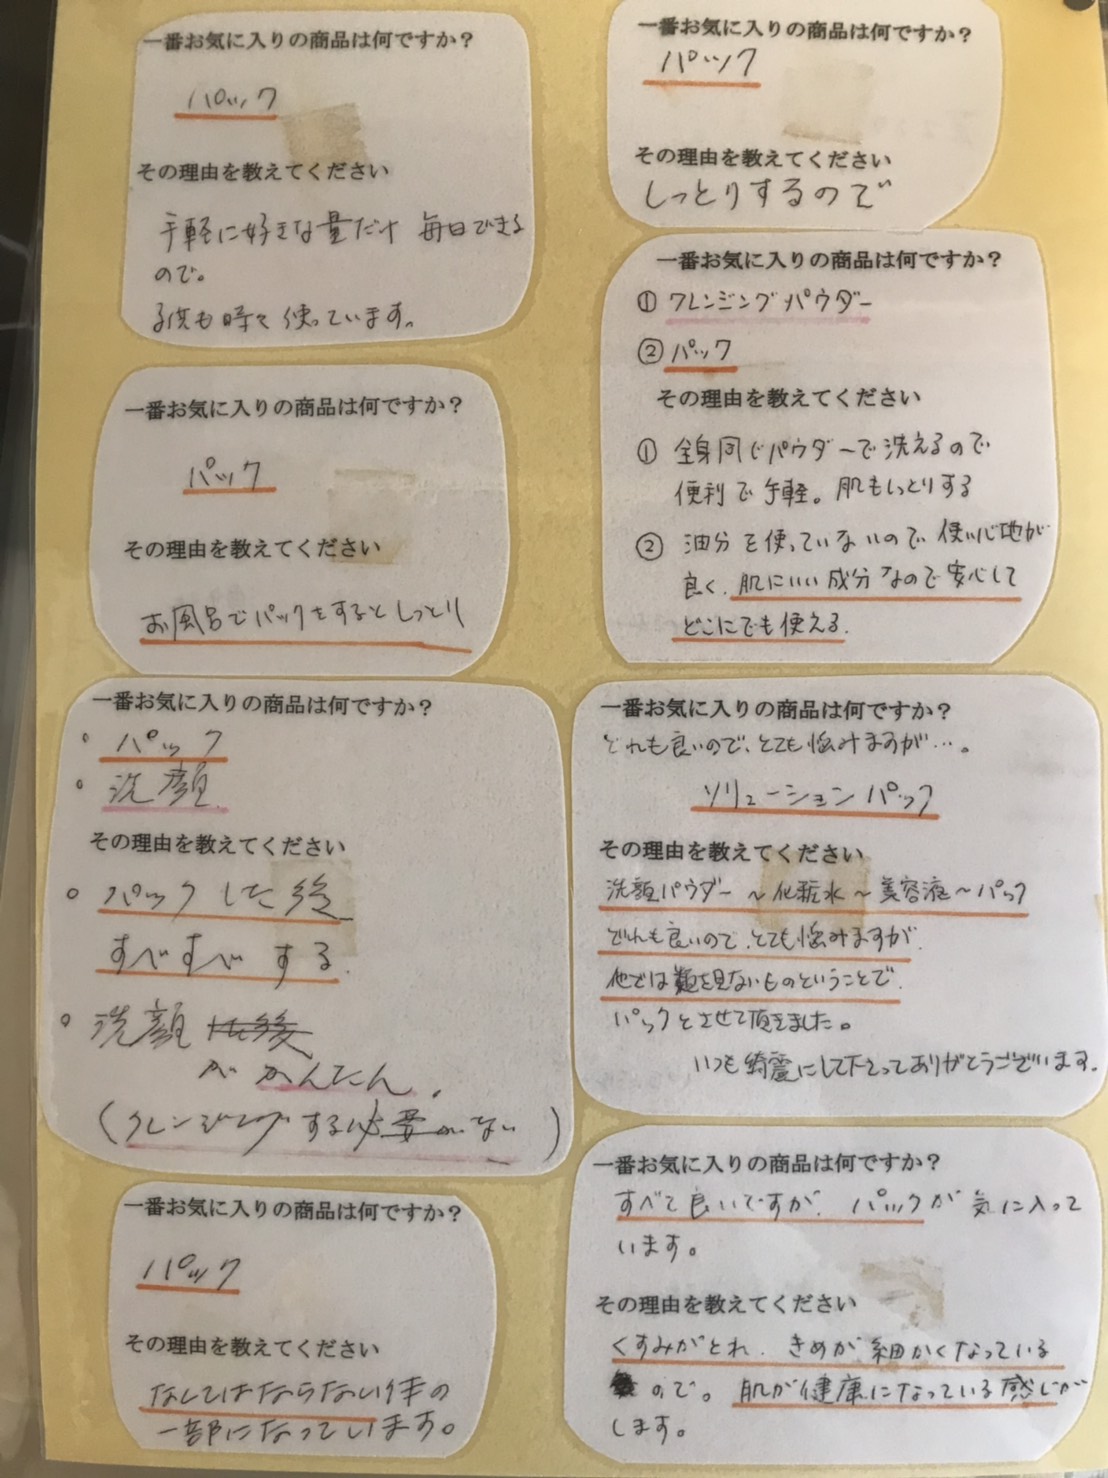 一番お気に入りの商品は何ですか？
パック
その理由を教えてください
手軽に好きな量だけ 毎日できる
ので。
子供も時々使っています。
一番お気に入りの商品は何ですか？
パック
その理由を教えてください
しっとりするので
一番お気に入りの商品は何ですか？
① クレンジングパウダー
② パック
その理由を教えてください
① 全身同じパウダーで洗えるので
便利で手軽。肌もしっとりする
② 油分を使っていないので、使い心地が
良く、肌にいい成分なので安心して
どこにでも使える。
一番お気に入りの商品は何ですか？
パック
その理由を教えてください
お風呂でパックをするとしっとり
一番お気に入りの商品は何ですか？
。パック
。洗顔
その理由を教えてください
。パックした後
すべすべする。
。洗顔
がかんたん。
（クレンジングする必要がない）
一番お気に入りの商品は何ですか？
どれも良いので、とても悩みますが…。
ソリューションパック
その理由を教えてください
洗顔パウダー～化粧水～美容液～パック
どれも良いので、とても悩みますが、
他では類を見ないものということで、
パックとさせて頂きました。
いつも綺麗にして下さってありがとうございます。
一番お気に入りの商品は何ですか？
パック
その理由を教えてください
なくてはならない体の
一部になっています。
一番お気に入りの商品は何ですか？
すべて良いですが、パックが気に入って
います。
その理由を教えてください
くすみがとれ、きめが細かくなっている
ので。肌が健康になっている感じが
します。